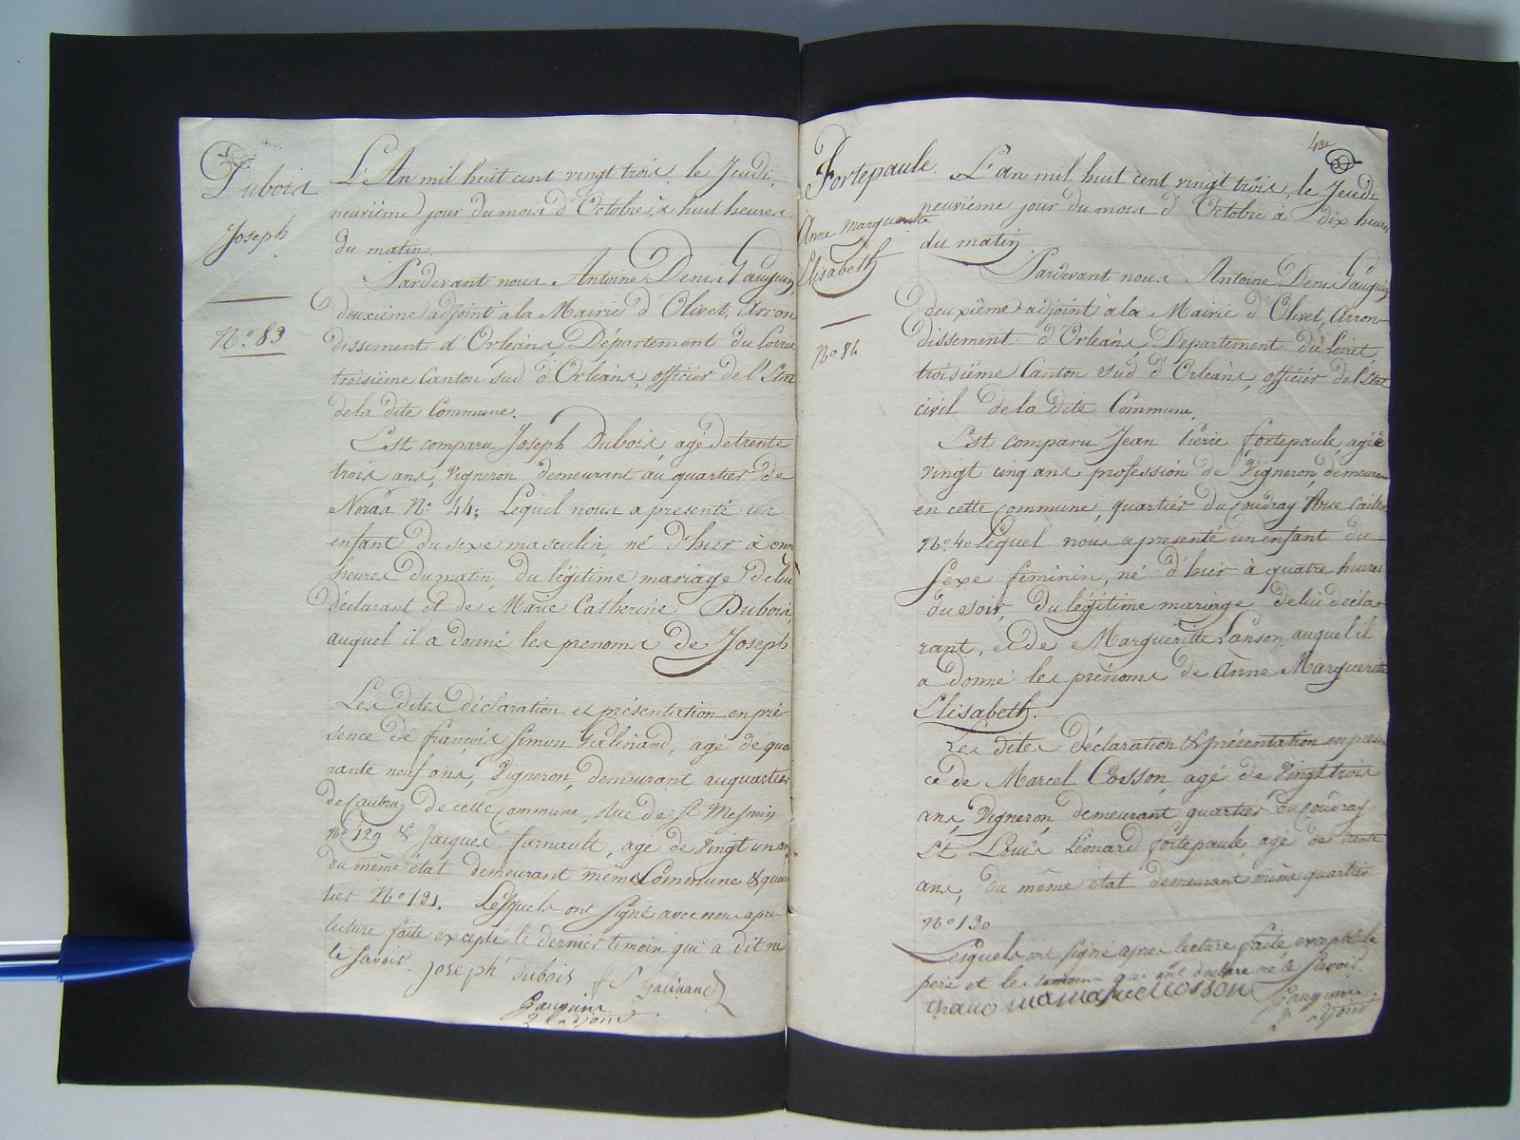 Dubois
Joseph
N.° 83
L'An mil huit cent vingt trois, le Jeudi,
neuvième jour du mois d'Octobre, à huit heures
du matin.
Pardevant nous Antoine Denis Gauguin
deuxième adjoint à la Mairie d'Olivet, Arron-
dissement d'Orléans, Département du Loiret
troisième Canton sud d'Orléans, officier de l'Etat
de la dite Commune.
Est comparu Joseph Dubois agé de trente
trois ans, Vigneron demeurant au quartier de
N.° 44; Lequel nous a presenté un
enfant du sexe masculin, né d'hier à onze
heures du matin, du légitime mariage de lui
déclarant et de Marie Catherine Dubois,
auquel il a donné les prenoms de Joseph
Les dites déclaration et présentation en pré-
sence de françois Simon Galinand, agé de qua
rante neuf ans, Vigneron, demeurant au quartier
de de cette Commune, Rue de St Mesmin
N.° 129 & Jacques farnault, agé de vingt un ans
du même état demeurant même Commune & quar
tier N.° 131. Lesquels ont signé avec nous après
lecture faite excepté le dernier temoin qui a dit ne
le savoir. joseph dubois f S galinand
Gauguin
2e adjoint
Fortepaule.
Anne Marguerite
Elisabeth
N.° 84
L'an mil huit cent vingt trois, le Jeudi
neuvième jour du mois d'Octobre à dix heures
du matin
Pardevant nous Antoine Denis Gauguin
deuxième adjoint à la Mairie d'Olivet, Arron-
dissement d'Orléans, Département du Loiret,
troisième Canton Sud d'Orléans, officier de l'Etat
civil de la dite Commune.
Est comparu Jean Pierre fortepaule agé de
vingt cinq ans profession de Vigneron, demeurant
en cette commune, quartier du Coudray Rue
N.° 40 Lequel nous a presenté un enfant du
sexe feminin, né d'hier à quatre heures
du soir, du légitime mariage de lui décla-
rant, et de Marguerite Lanson, auquel il
a donné les prénoms de Anne Marguerite
Elisabeth.
Les dites déclaration & présentation en presen
ce de Marcel Cosson, agé de vingt trois
ans, Vigneron, demeurant quartier du Couday
et Louis Léonard fortepaule agé de trente
ans, du même état demeurant même quartier
N.° 130
Lesquels ont signé après lecture faite excepté le
père et le temoin qui ont déclaré ne le savoir.
Cosson Gauguin
2e adjoint